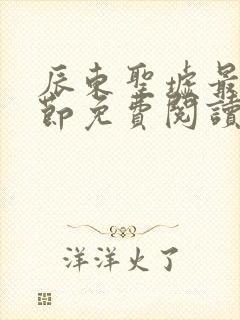 辰東聖墟最
節免費閱讀
洋洋火了